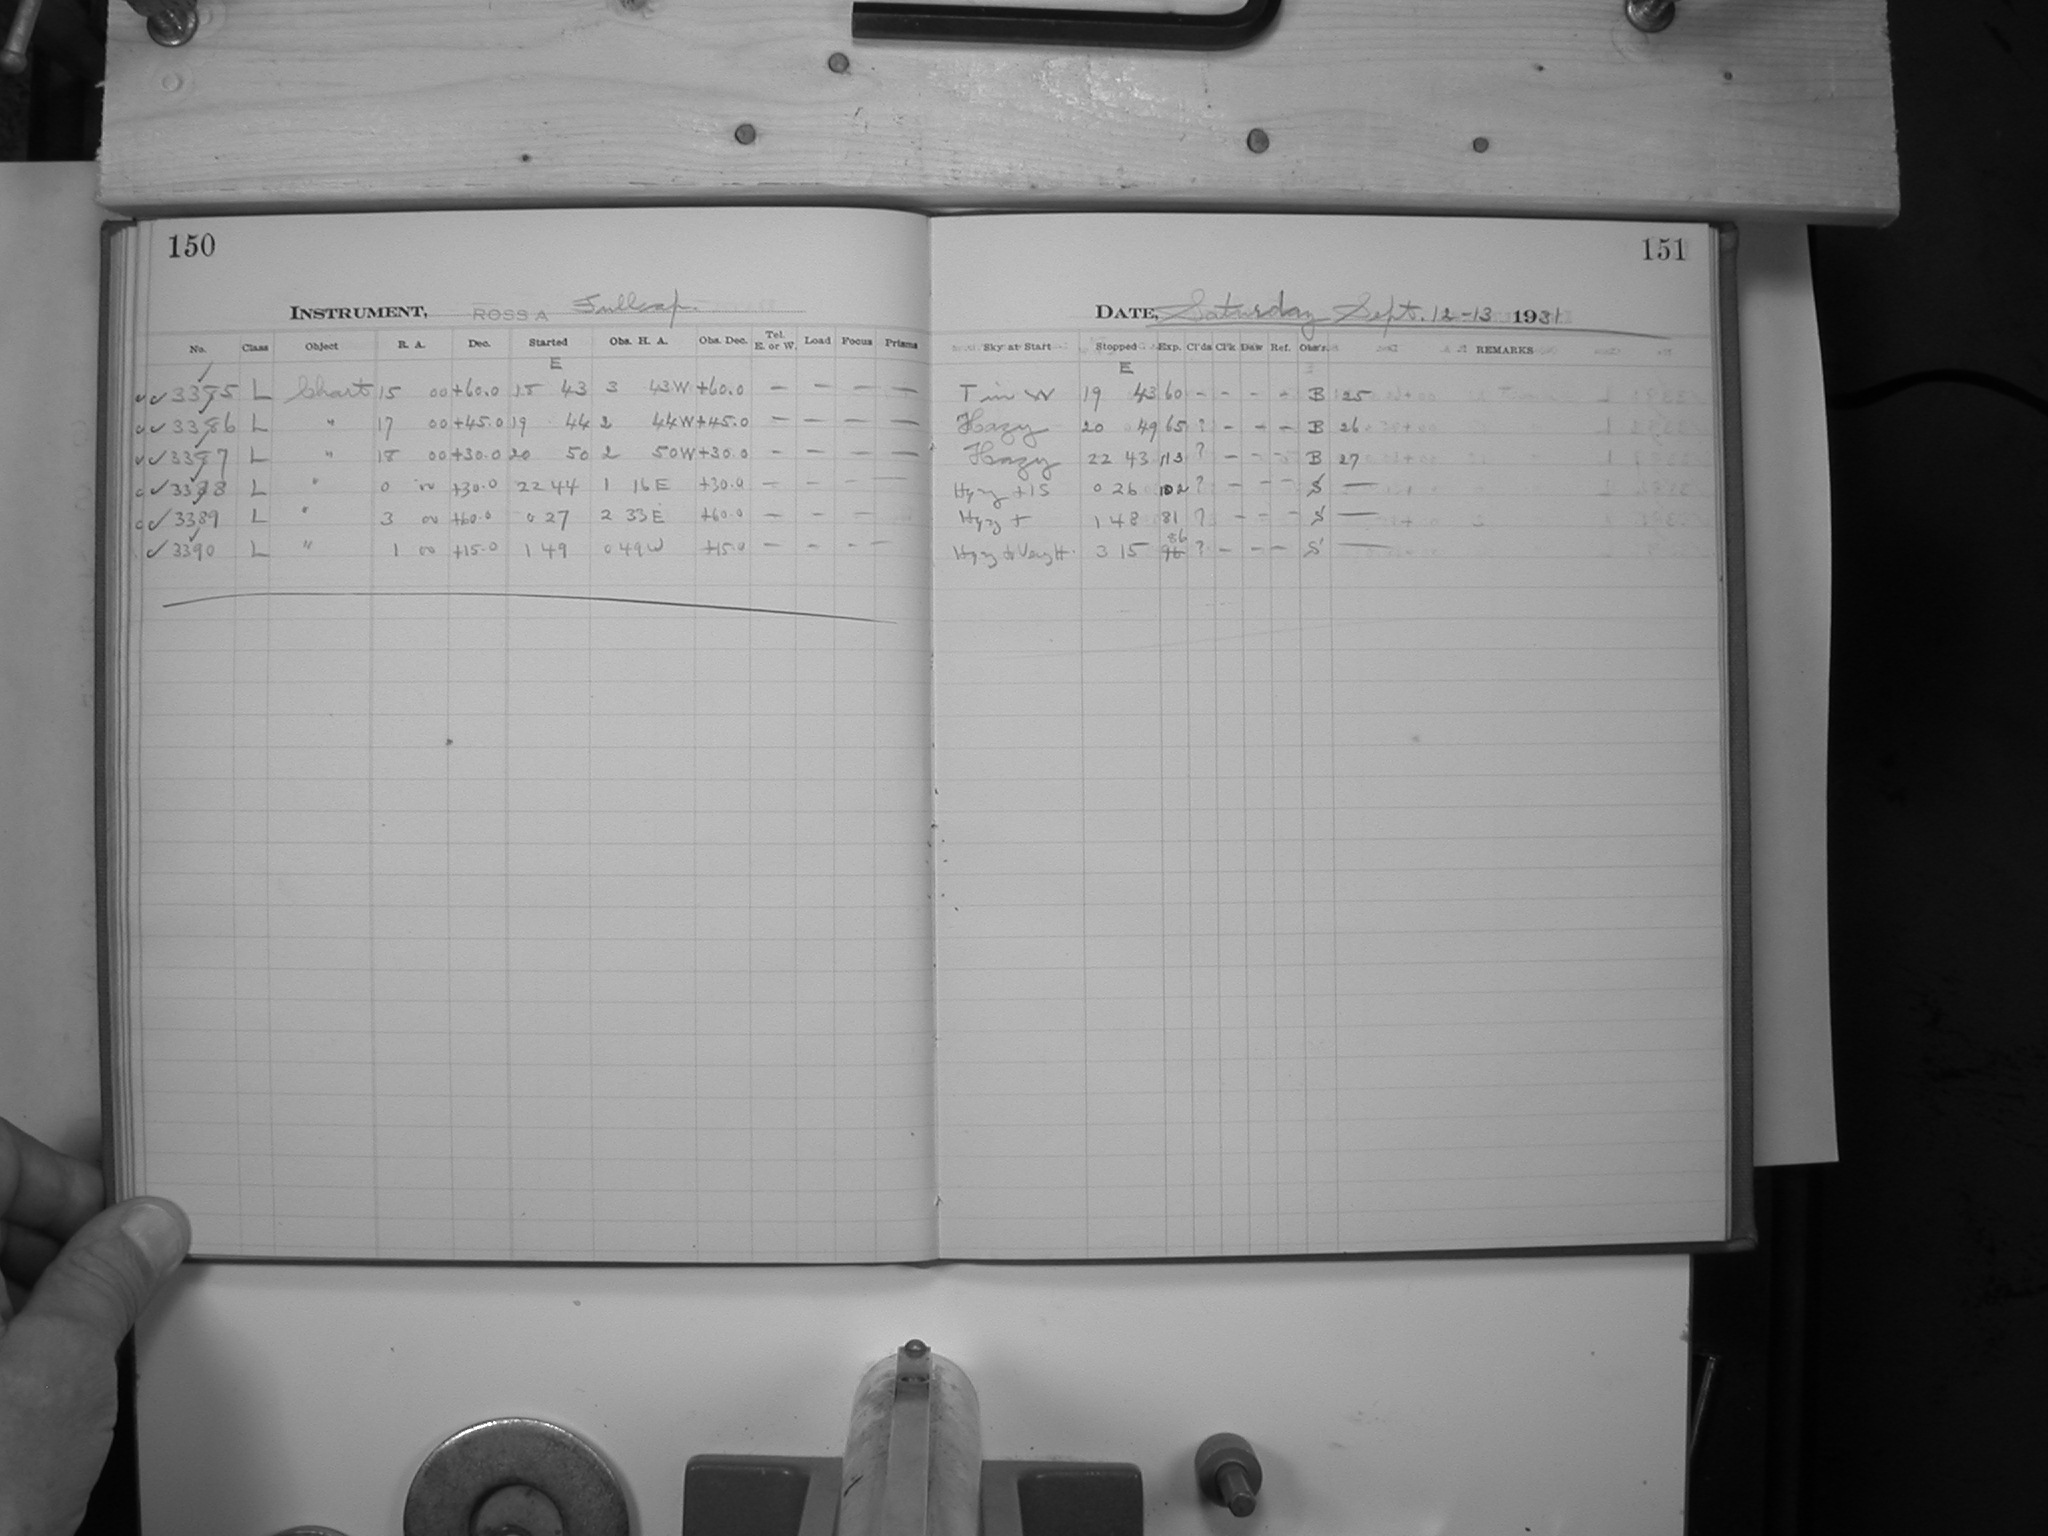 150
INSTRUMENT, ROSS A Full cap.
No. Class Object R. A. Dec. Started Obs. H. A. Obs. Dec. Tel. E. or W. Load Focus Prisms
E
✓✓ 3385 L Chart 15 00 +60.0 18 43 3 43W +60.0 — — — —
✓✓ 3386 L " 17 00 +45.0 19 44 2 44W +45.0 — — — —
✓✓ 3387 L " 18 00 +30.0 20 50 2 50W +30.0 — — — —
✓ 3388 L " 0 00 +30.0 22 44 1 16E +30.0 — — — —
✓ 3389 L " 3 00 +60.0 0 27 2 33E +60.0 — — — —
✓ 3390 L " 1 00 +15.0 1 49 0 49W +15.0 — — — —
151
DATE, Saturday Sept. 12-13 1931
Sky at Start Stopped Exp. Cl'ds Cl'k Daw Ref. Obs'r. REMARKS
E
T in W 19 43 60 - - - - B 25
Hazy 20 49 65 ? - - - B 26
Hazy 22 43 113 ? - - - B 27
Hazy +15 0 26 102 ? - - - S —
Hazy + 1 48 81 ? - - - S —
Hazy 3 15 86 ? - - - S —